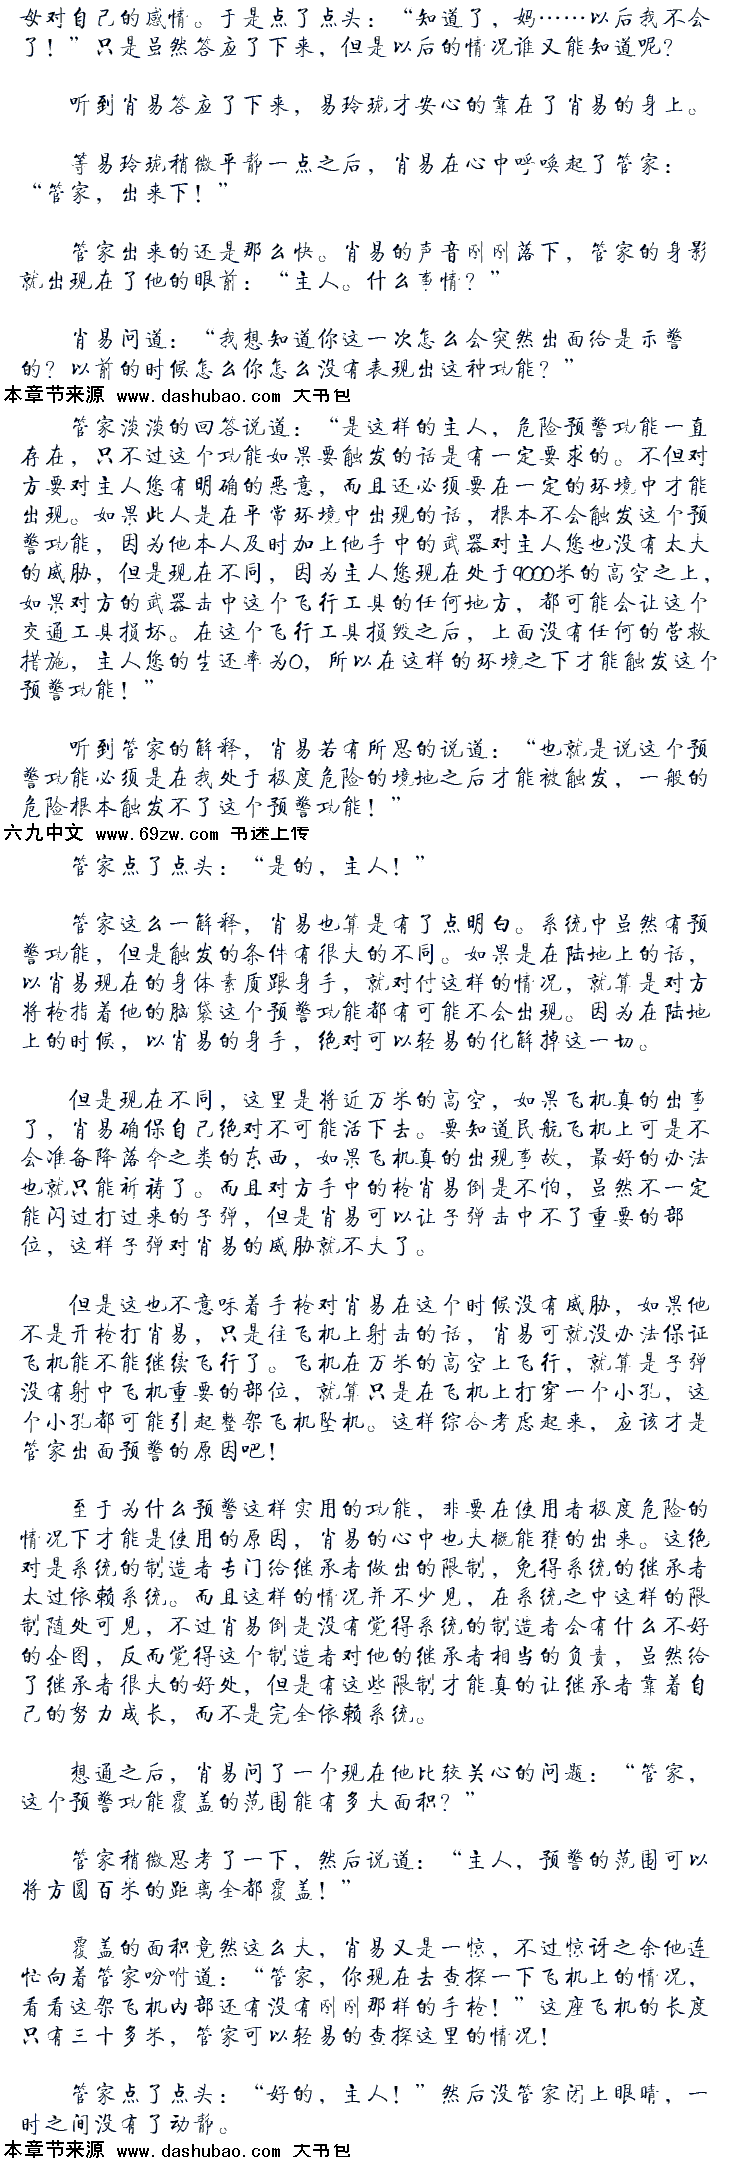 母对自己的感情。于是点了点头：“知道了，妈……以后我不会
了！”只是虽然答应了下来，但是以后的情况谁又能知道呢？
听到肖易答应了下来，易玲珑才安心的靠在了肖易的身上。
等易玲珑稍微平静一点之后，肖易在心中呼唤起了管家：
“管家，出来下！”
管家出来的还是那么快。肖易的声音刚刚落下，管家的身影
就出现在了他的眼前：“主人。什么事情？”
肖易问道：“我想知道你这一次怎么会突然出面给是示警
的？以前的时候怎么你怎么没有表现出这种功能？”
本章节来源 www.dashubao.com 大书包
管家淡淡的回答说道：“是这样的主人，危险预警功能一直
存在，只不过这个功能如果要触发的话是有一定要求的。不但对
方要对主人您有明确的恶意，而且还必须要在一定的环境中才能
出现。如果此人是在平常环境中出现的话，根本不会触发这个预
警功能，因为他本人及时加上他手中的武器对主人您也没有太大
的威胁，但是现在不同，因为主人您现在处于9000米的高空之上，
如果对方的武器击中这个飞行工具的任何地方，都可能会让这个
交通工具损坏。在这个飞行工具损毁之后，上面没有任何的营救
措施，主人您的生还率为0，所以在这样的环境之下才能触发这个
预警功能！”
听到管家的解释，肖易若有所思的说道：“也就是说这个预
警功能必须是在我处于极度危险的境地之后才能被触发，一般的
危险根本触发不了这个预警功能！”
六九中文 www.69zw.com 书迷上传
管家点了点头：“是的，主人！”
管家这么一解释，肖易也算是有了点明白。系统中虽然有预
警功能，但是触发的条件有很大的不同。如果是在陆地上的话，
以肖易现在的身体素质跟身手，就对付这样的情况，就算是对方
将枪指着他的脑袋这个预警功能都有可能不会出现。因为在陆地
上的时候，以肖易的身手，绝对可以轻易的化解掉这一切。
但是现在不同，这里是将近万米的高空，如果飞机真的出事
了，肖易确保自己绝对不可能活下去。要知道民航飞机上可是不
会准备降落伞之类的东西，如果飞机真的出现事故，最好的办法
也就只能祈祷了。而且对方手中的枪肖易倒是不怕，虽然不一定
能闪过打过来的子弹，但是肖易可以让子弹击中不了重要的部
位，这样子弹对肖易的威胁就不大了。
但是这也不意味着手枪对肖易在这个时候没有威胁，如果他
不是开枪打肖易，只是往飞机上射击的话，肖易可就没办法保证
飞机能不能继续飞行了。飞机在万米的高空上飞行，就算是子弹
没有射中飞机重要的部位，就算只是在飞机上打穿一个小孔，这
个小孔都可能引起整架飞机坠机。这样综合考虑起来，应该才是
管家出面预警的原因吧！
至于为什么预警这样实用的功能，非要在使用者极度危险的
情况下才能是使用的原因，肖易的心中也大概能猜的出来。这绝
对是系统的制造者专门给继承者做出的限制，免得系统的继承者
太过依赖系统。而且这样的情况并不少见，在系统之中这样的限
制随处可见，不过肖易倒是没有觉得系统的制造者会有什么不好
的企图，反而觉得这个制造者对他的继承者相当的负责，虽然给
了继承者很大的好处，但是有这些限制才能真的让继承者靠着自
己的努力成长，而不是完全依赖系统。
想通之后，肖易问了一个现在他比较关心的问题：“管家，
这个预警功能覆盖的范围能有多大面积？”
管家稍微思考了一下，然后说道：“主人，预警的范围可以
将方圆百米的距离全都覆盖！”
覆盖的面积竟然这么大，肖易又是一惊，不过惊讶之余他连
忙向着管家吩咐道：“管家，你现在去查探一下飞机上的情况，
看看这架飞机内部还有没有刚刚那样的手枪！”这座飞机的长度
只有三十多米，管家可以轻易的查探这里的情况！
管家点了点头：“好的，主人！”然后没管家闭上眼睛，一
时之间没有了动静。
本章节来源 www.dashubao.com 大书包